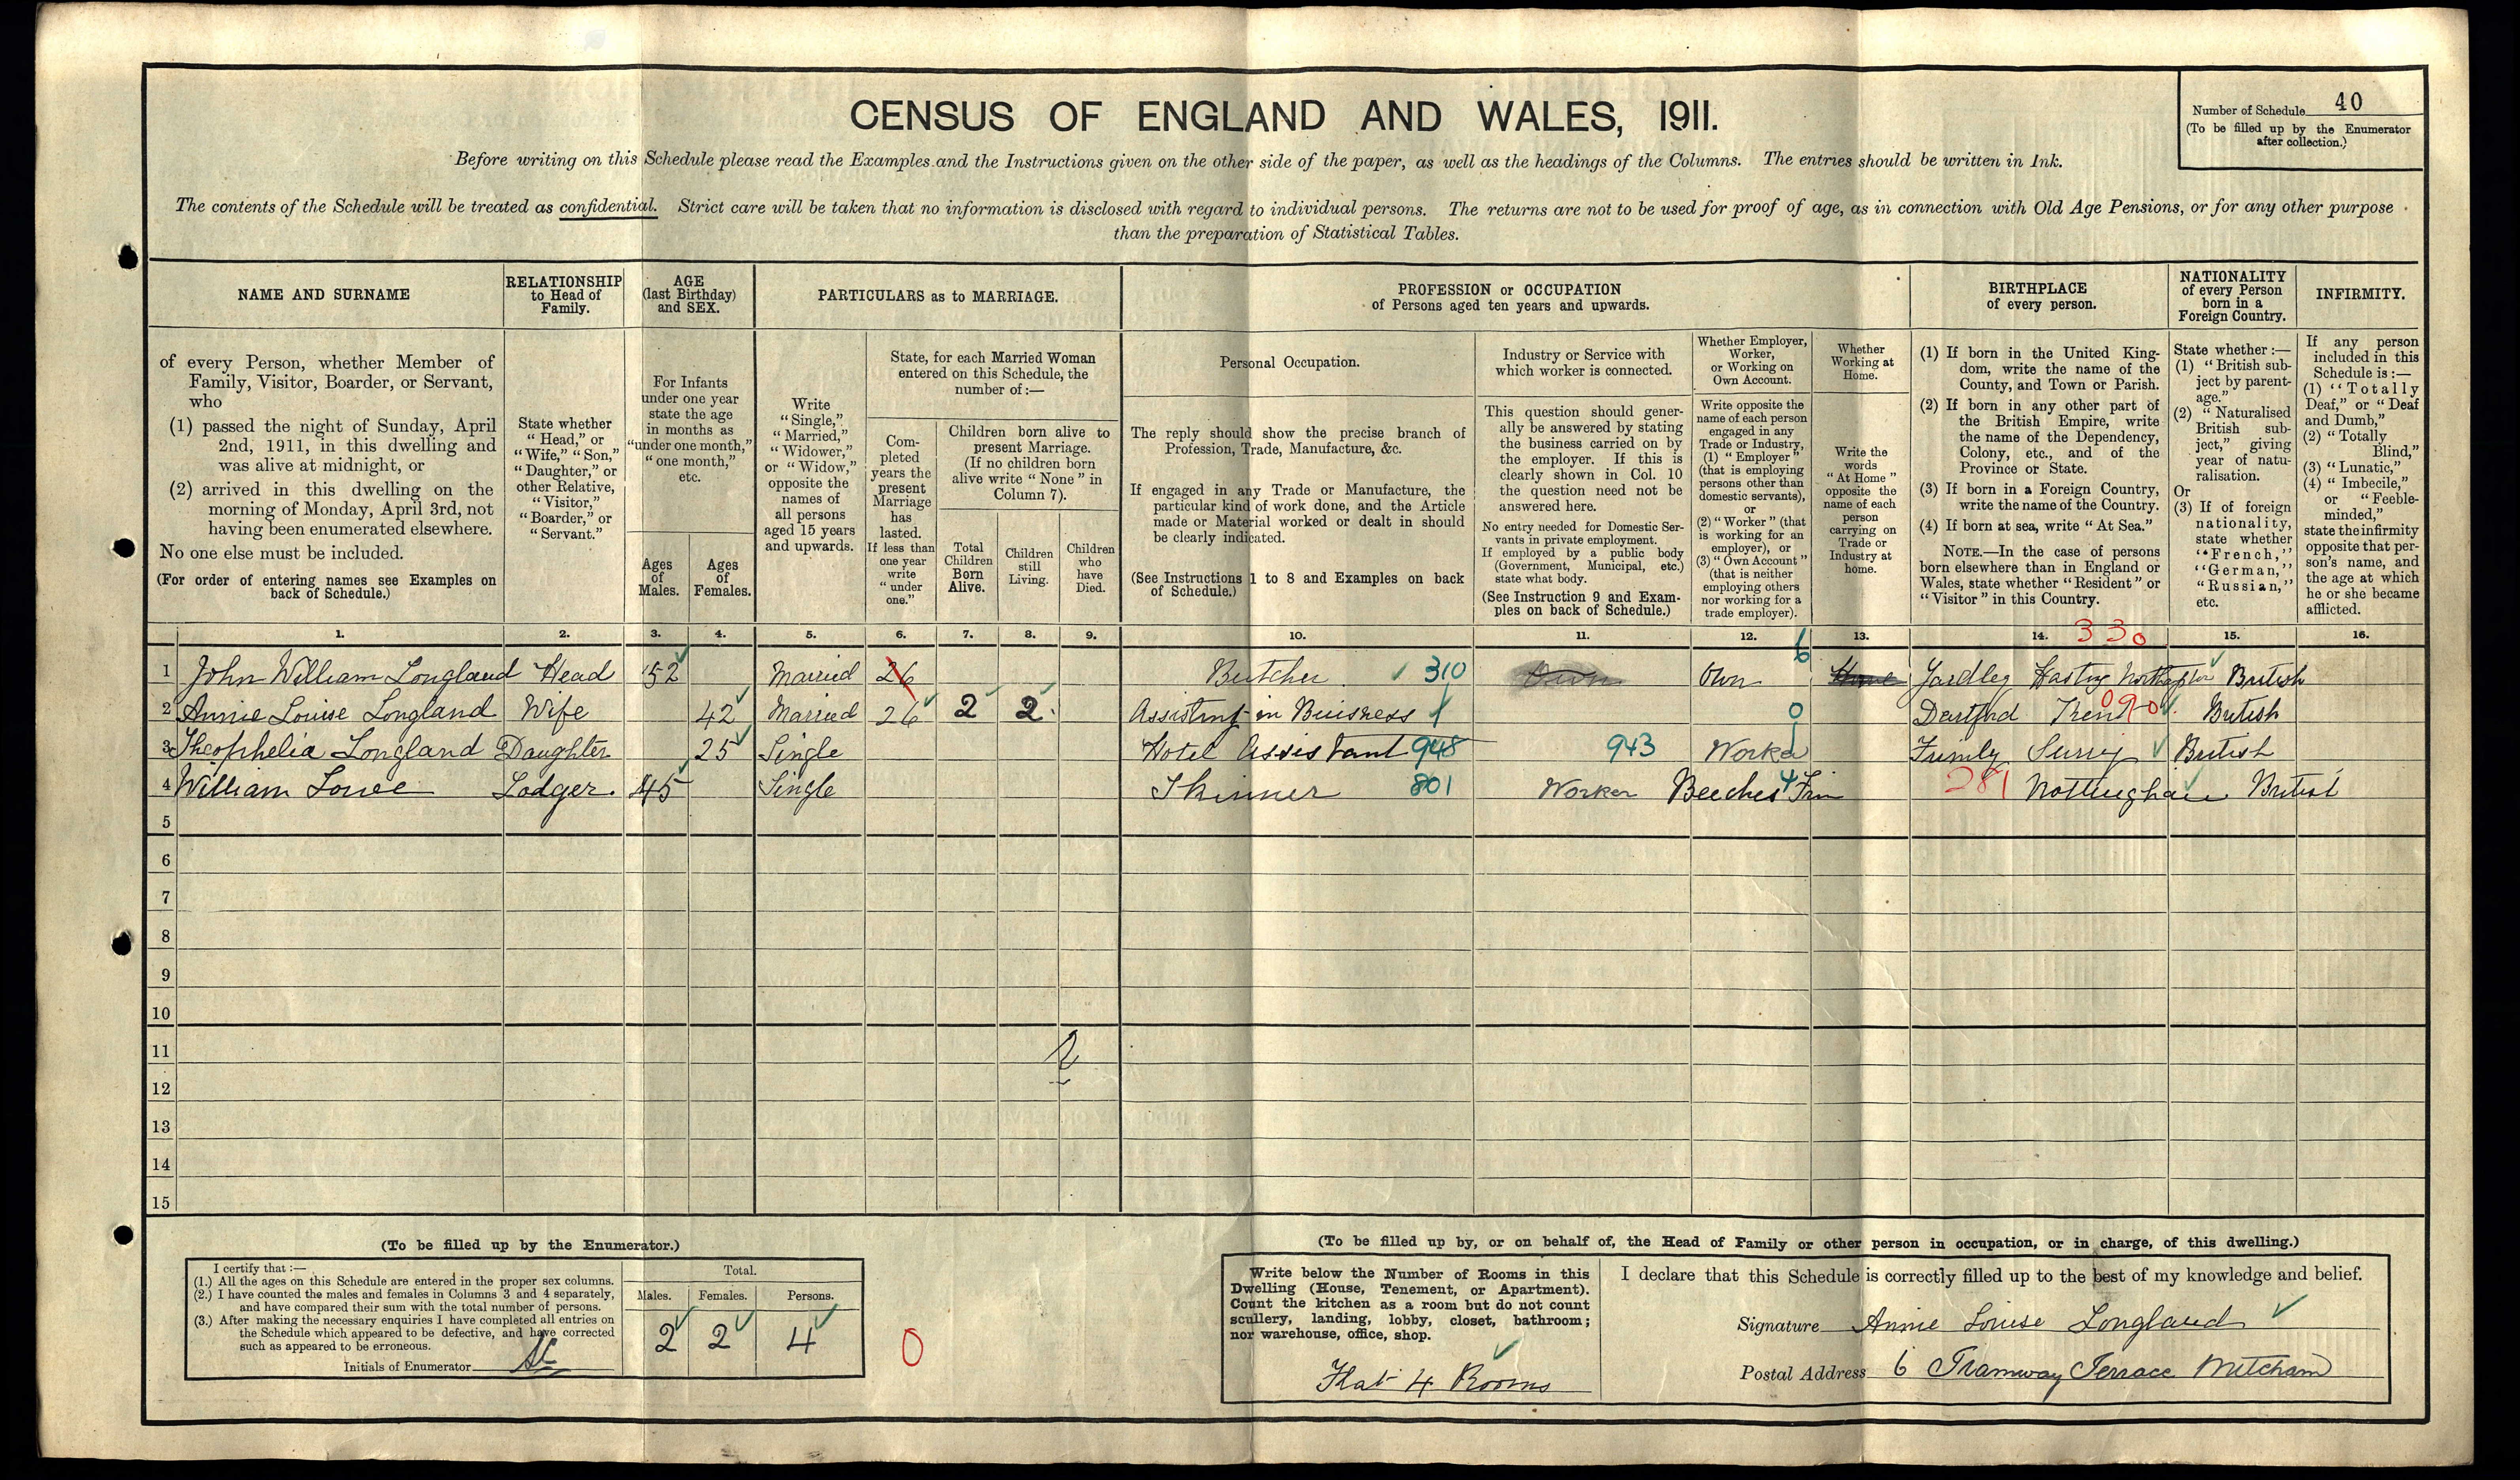 CENSUS OF ENGLAND AND WALES, 1911.
Number of Schedule 40
(To be filled up by the Enumerator
after collection.)
Before writing on this Schedule please read the Examples and the Instructions given on the other side of the paper, as well as the headings of the Columns. The entries should be written in Ink.
The contents of the Schedule will be treated as confidential. Strict care will be taken that no information is disclosed with regard to individual persons. The returns are not to be used for proof of age, as in connection with Old Age Pensions, or for any other purpose
than the preparation of Statistical Tables.
NAME AND SURNAME
of every Person, whether Member of
Family, Visitor, Boarder, or Servant,
who
(1) passed the night of Sunday, April
2nd, 1911, in this dwelling and
was alive at midnight, or
(2) arrived in this dwelling on the
morning of Monday, April 3rd, not
having been enumerated elsewhere.
No one else must be included.
(For order of entering names see Examples on
back of Schedule.)
RELATIONSHIP
to Head of
Family.
State whether
"Head," or
"Wife," "Son,"
"Daughter," or
other Relative,
"Visitor,"
"Boarder," or
"Servant."
AGE
(last Birthday)
and SEX.
For Infants
under one year
state the age
in months as
"under one month,"
"one month,"
etc.
Ages
of
Males.
Ages
of
Females.
PARTICULARS as to MARRIAGE.
Write
"Single,"
"Married,"
"Widower,"
or "Widow,"
opposite the
names of
all persons
aged 15 years
and upwards.
State, for each Married Woman
entered on this Schedule, the
number of:—
Com-
pleted
years the
present
Marriage
has
lasted.
If less than
one year
write
"under
one."
Children born alive to
present Marriage.
(If no children born
alive write "None" in
Column 7).
Total
Children
Born
Alive.
Children
still
Living.
Children
who
have
Died.
PROFESSION or OCCUPATION
of Persons aged ten years and upwards.
Personal Occupation.
The reply should show the precise branch of
Profession, Trade, Manufacture, &c.
If engaged in any Trade or Manufacture, the
particular kind of work done, and the Article
made or Material worked or dealt in should
be clearly indicated.
(See Instructions 1 to 8 and Examples on back
of Schedule.)
Industry or Service with
which worker is connected.
This question should gener-
ally be answered by stating
the business carried on by
the employer. If this is
clearly shown in Col. 10
the question need not be
answered here.
No entry needed for Domestic Ser-
vants in private employment.
If employed by a public body
(Government, Municipal, etc.)
state what body.
(See Instruction 9 and Exam-
ples on back of Schedule.)
Whether Employer,
Worker,
or Working on
Own Account.
Write opposite the
name of each person
engaged in any
Trade or Industry,
(1) "Employer"
(that is employing
persons other than
domestic servants),
or
(2) "Worker" (that
is working for an
employer), or
(3) "Own Account"
(that is neither
employing others
nor working for a
trade employer).
Whether
Working at
Home.
Write the
words
"At Home"
opposite the
name of each
person
carrying on
Trade or
Industry at
home.
BIRTHPLACE
of every person.
(1) If born in the United King-
dom, write the name of the
County, and Town or Parish.
(2) If born in any other part of
the British Empire, write
the name of the Dependency,
Colony, etc., and of the
Province or State.
(3) If born in a Foreign Country,
write the name of the Country.
(4) If born at sea, write "At Sea."
NOTE.—In the case of persons
born elsewhere than in England or
Wales, state whether "Resident" or
"Visitor" in this Country.
NATIONALITY
of every Person
born in a
Foreign Country.
State whether:—
(1) "British sub-
ject by parent-
age."
(2) "Naturalised
British sub-
ject," giving
year of natu-
ralisation.
Or
(3) If of foreign
nationality,
state whether
"French,"
"German,"
"Russian,"
etc.
INFIRMITY.
If any person
included in this
Schedule is:—
(1) "Totally
Deaf," or "Deaf
and Dumb,"
(2) "Totally
Blind,"
(3) "Lunatic,"
(4) "Imbecile,"
or "Feeble-
minded,"
state the infirmity
opposite that per-
son's name, and
the age at which
he or she became
afflicted.
1. 2. 3. 4. 5. 6. 7. 8. 9. 10. 11. 12. 13. 14. 330 15. 16.
1 John William Longland Head 52 Married 26 Butcher 310 Own Own 6 Home Yardley Hasting Northampton British
2 Annie Louise Longland Wife 42 Married 26 2 2 Assisting in Buisness 0 Dartford Kent 090 British
3 Theophelia Longland Daughter 25 Single Hotel Assistant 948 943 Worker Frimly Surrey British
4 William Lodger. 45 Single Skinner 801 Worker Beeches 4 281 Nottingham British
5
6
7
8
9
10
11
12
13
14
15
(To be filled up by the Enumerator.)
I certify that:—
(1.) All the ages on this Schedule are entered in the proper sex columns.
(2.) I have counted the males and females in Columns 3 and 4 separately,
and have compared their sum with the total number of persons.
(3.) After making the necessary enquiries I have completed all entries on
the Schedule which appeared to be defective, and have corrected
such as appeared to be erroneous.
Initials of Enumerator
Total.
Males. Females. Persons.
2 2 4
0
(To be filled up by, or on behalf of, the Head of Family or other person in occupation, or in charge, of this dwelling.)
Write below the Number of Rooms in this
Dwelling (House, Tenement, or Apartment).
Count the kitchen as a room but do not count
scullery, landing, lobby, closet, bathroom;
nor warehouse, office, shop.
Flat 4 Rooms
I declare that this Schedule is correctly filled up to the best of my knowledge and belief.
Signature Annie Louise Longland
Postal Address 6 Tramway Terrace Mitcham